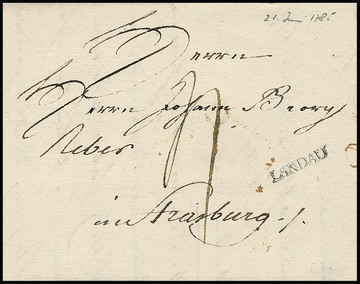 21 Juni 1785
Herrn
Herrn Johann Georg
Reber
LANDAU
in Strasburg